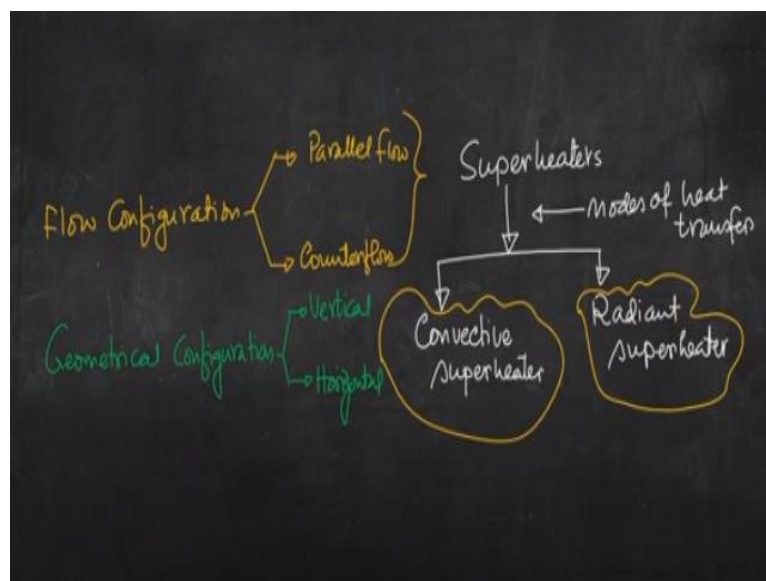 Flow Configuration
Parallel flow
Counterflow
Geometrical Configuration
Vertical
Horizontal
Superheaters
Modes of heat
transfer
Convective
superheater
Radiant
superheater